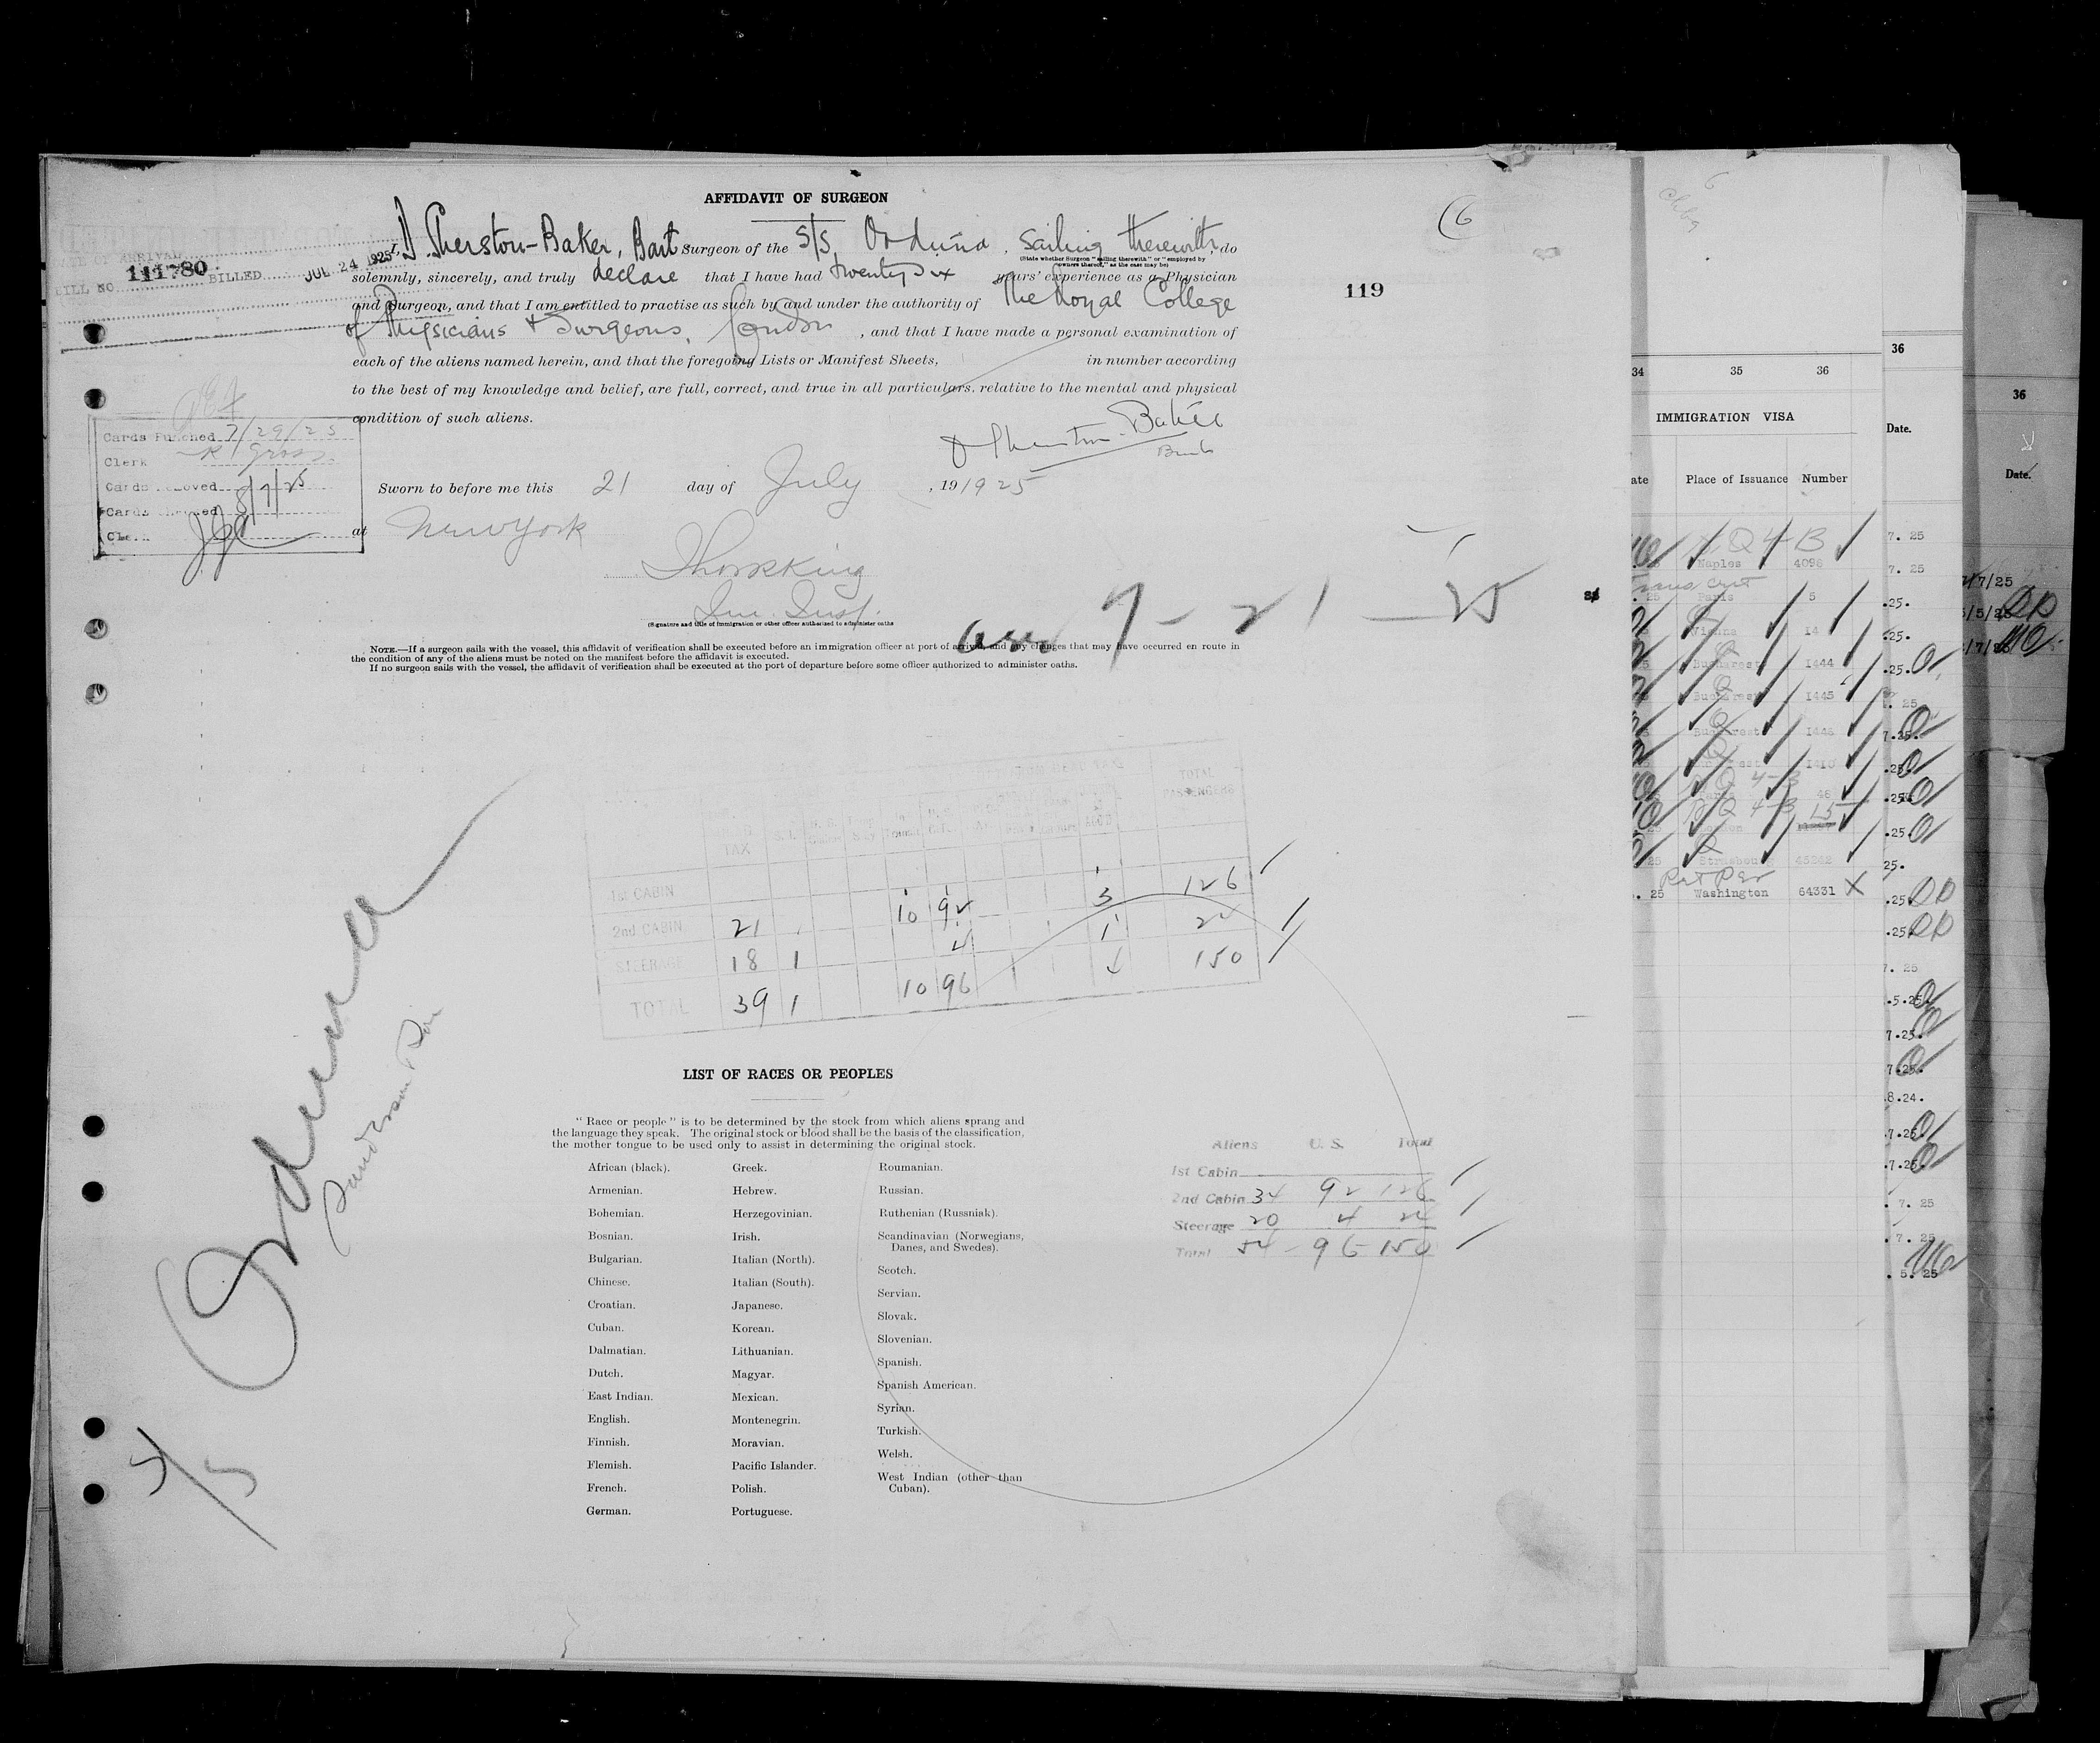 AFFIDAVIT OF SURGEON
6
I, D. Sherston-Baker, Bart Surgeon of the S/S Orduña, sailing therewith, do
(State whether Surgeon "sailing therewith" or "employed by owners thereof," as the case may be)
solemnly, sincerely, and truly declare that I have had twenty six years' experience as a Physician
and Surgeon, and that I am entitled to practise as such by and under the authority of The Royal College
of Physicians & Surgeons, London, and that I have made a personal examination of
each of the aliens named herein, and that the foregoing Lists or Manifest Sheets, in number according
to the best of my knowledge and belief, are full, correct, and true in all particulars. relative to the mental and physical
condition of such aliens.
DATE OF ARRIVAL
BILL NO. 111780 BILLED JUL 24 1925
119
D Sherston-Baker
Bart
Cards Punched 7/29/25
Clerk R Gross
Cards removed 8/7/25
Cards checked
Clerk
Sworn to before me this 21 day of July, 19 1925
at New York
Imm. Insp.
(Signature and title of immigration or other officer authorized to administer oaths
7-21-25
NOTE.—If a surgeon sails with the vessel, this affidavit of verification shall be executed before an immigration officer at port of arrival, and any changes that may have occurred en route in
the condition of any of the aliens must be noted on the manifest before the affidavit is executed.
If no surgeon sails with the vessel, the affidavit of verification shall be executed at the port of departure before some officer authorized to administer oaths.
TAX TOTAL PASSENGERS
1st CABIN
2nd CABIN 21 10 92 3 126
STEERAGE 18 1 4 1 24
TOTAL 39 1 10 96 4 150
Orduna
Sanderson & Son
LIST OF RACES OR PEOPLES
"Race or people" is to be determined by the stock from which aliens sprang and
the language they speak. The original stock or blood shall be the basis of the classification,
the mother tongue to be used only to assist in determining the original stock.
African (black).
Armenian.
Bohemian.
Bosnian.
Bulgarian.
Chinese.
Croatian.
Cuban.
Dalmatian.
Dutch.
East Indian.
English.
Finnish.
Flemish.
French.
German.
Greek.
Hebrew.
Herzegovinian.
Irish.
Italian (North).
Italian (South).
Japanese.
Korean.
Lithuanian.
Magyar.
Mexican.
Montenegrin.
Moravian.
Pacific Islander.
Polish.
Portuguese.
Roumanian.
Russian.
Ruthenian (Russniak).
Scandinavian (Norwegians,
Danes, and Swedes).
Scotch.
Servian.
Slovak.
Slovenian.
Spanish.
Spanish American.
Syrian.
Turkish.
Welsh.
West Indian (other than
Cuban).
Aliens U. S. Total
1st Cabin
2nd Cabin 34 92 126
Steerage 20 4 24
Total 54 96 150
34 35 36
IMMIGRATION VISA
Place of Issuance Number
N.Q 4-B
Naples 4098
Paris 5
Vienna 14
Bucharest 1444
Bucharest 1445
Bucharest 1446
N Q 4-3
Paris 46
N Q 4-3 15
Strasbourg
Ret Per
25 Washington 64331 X
36
Date.
7. 25
7. 25
.25.
.25.
.25.
7.25.
8.24.
7.25
7.25
7. 25
7. 25
5. 25
36
Date.
7/7/25